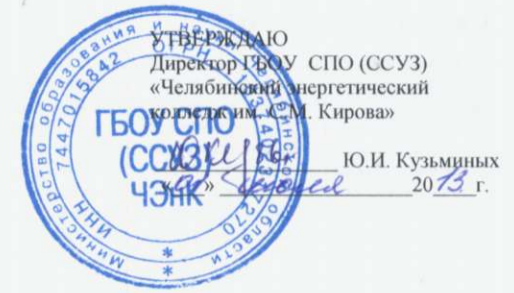 УТВЕРЖДАЮ
Директор ГБОУ СПО (ССУЗ)
«Челябинский энергетический
колледж им. С.М. Кирова»
Ю.И. Кузьминых
2013 г.
Министерство образования и
области
ИНН 7447015842 ОГРН
ГБОУ СПО
(ССУЗ)
ЧЭнК